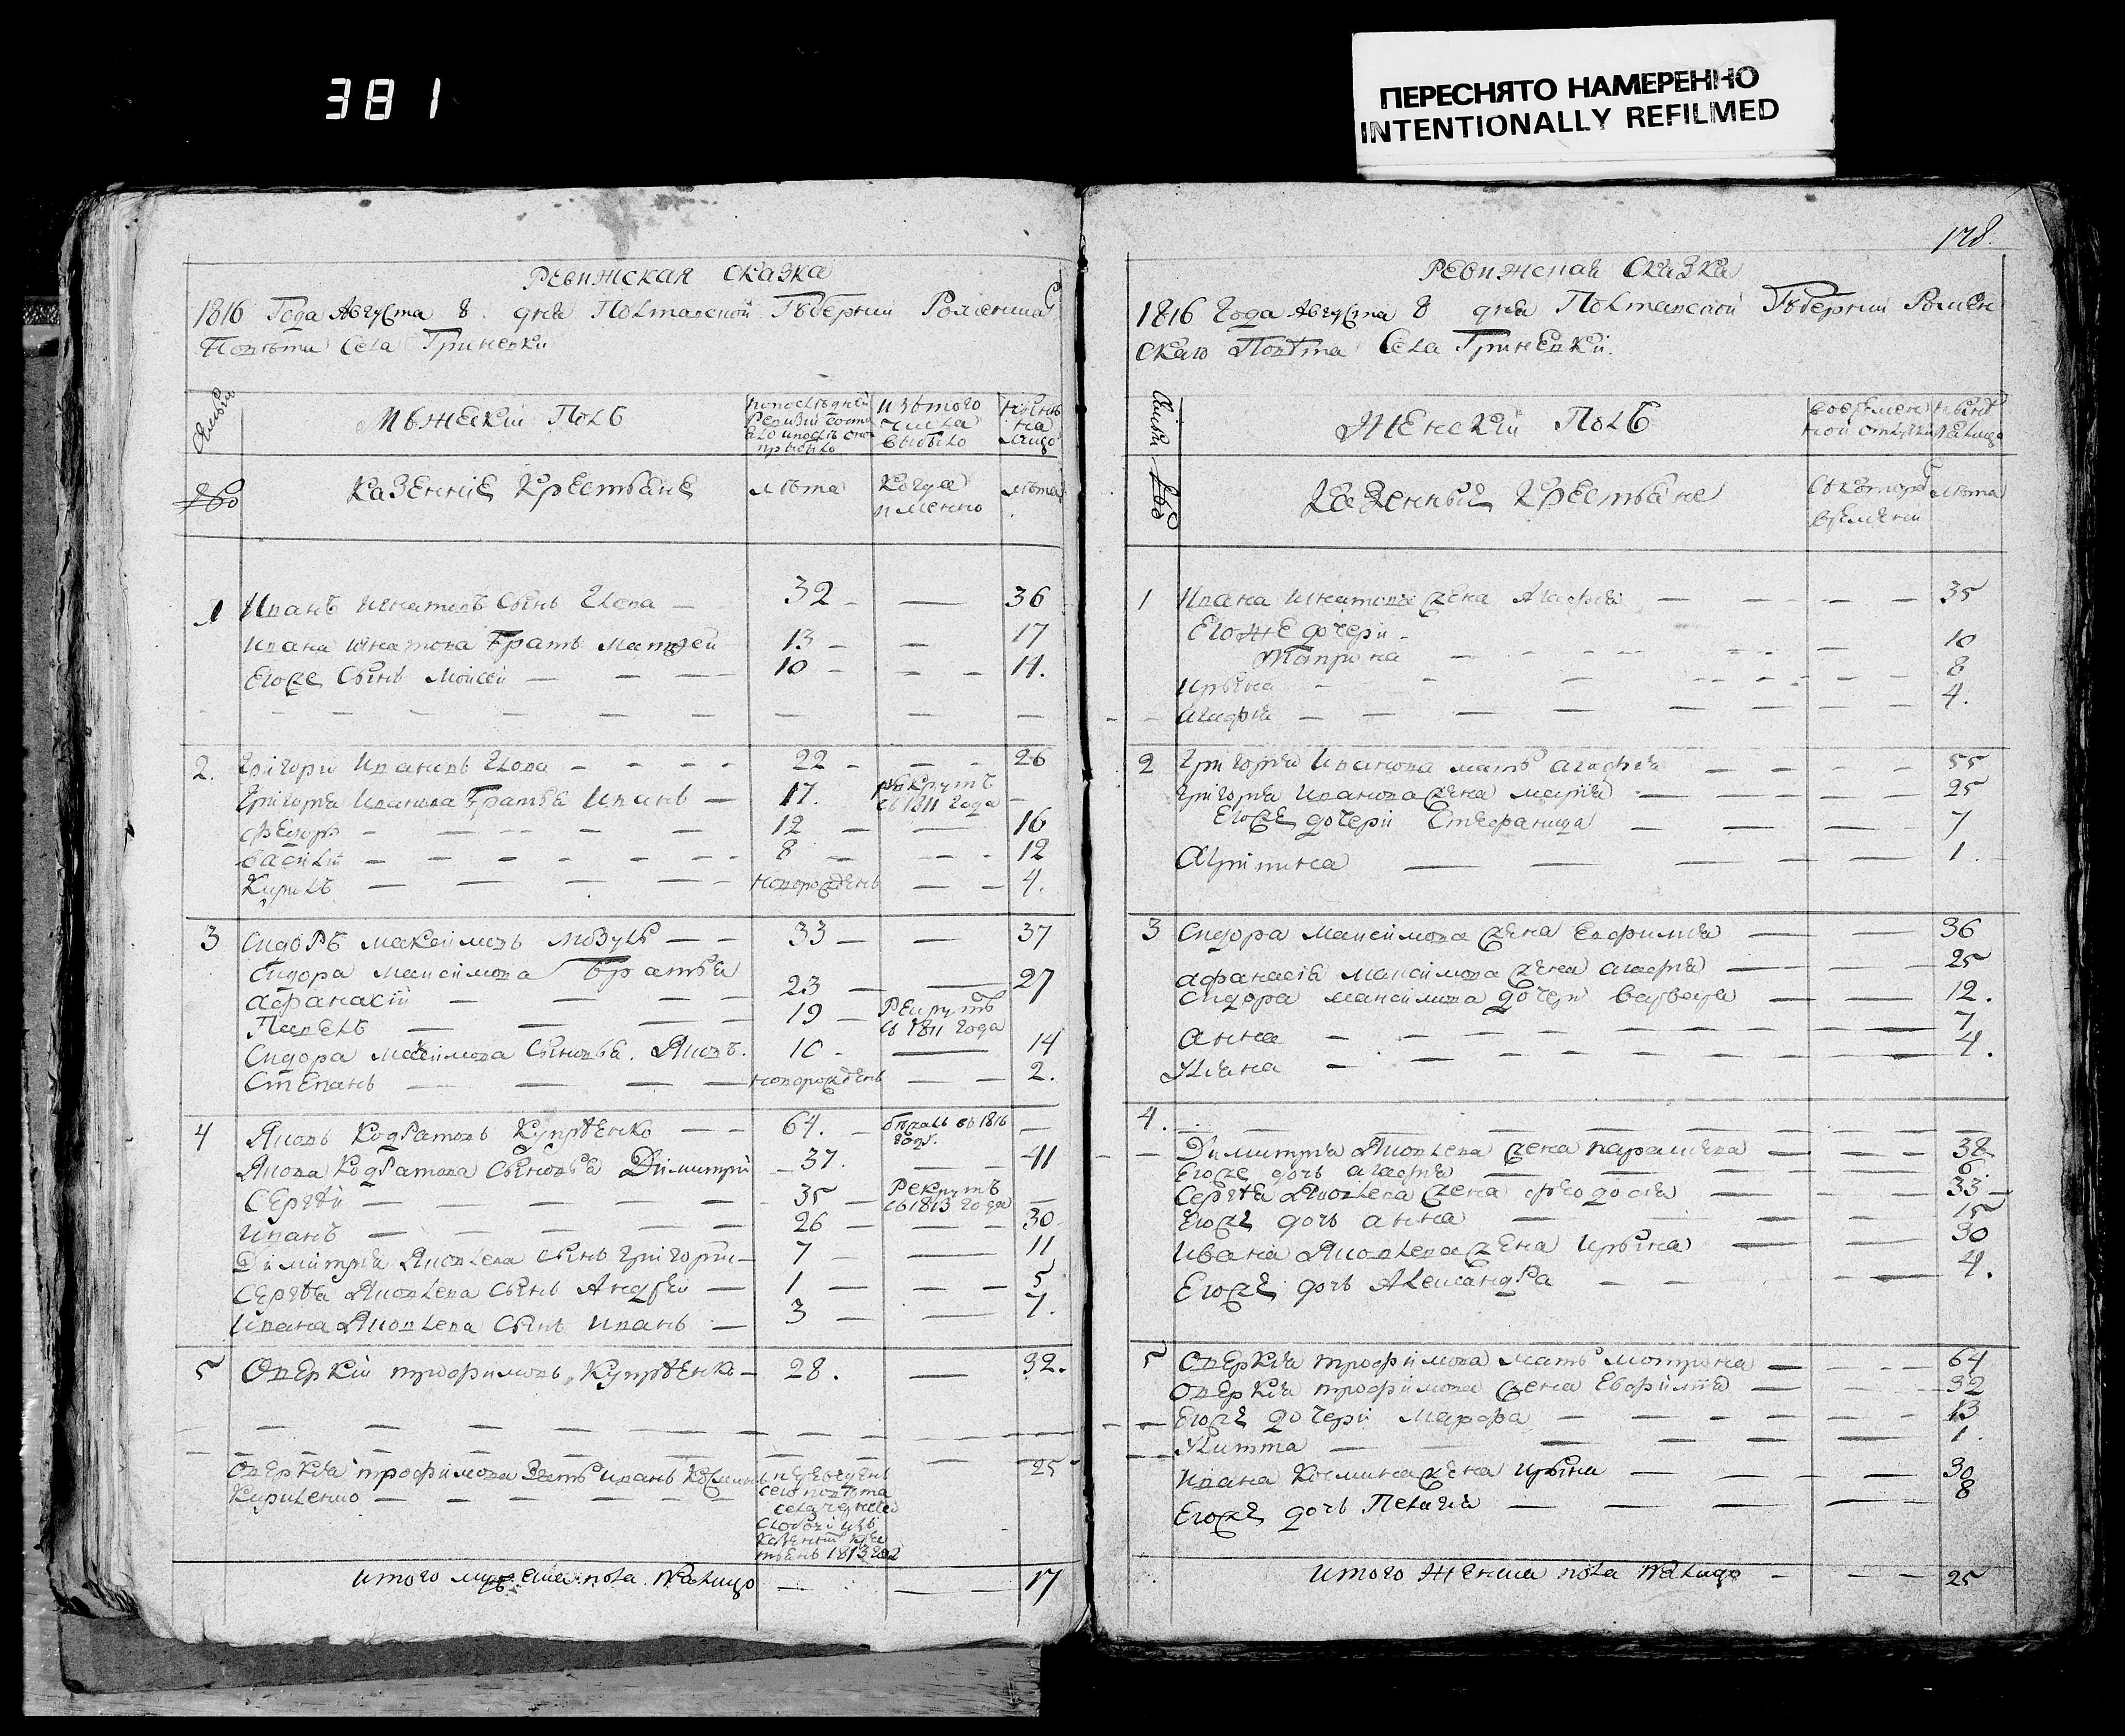 381
ПЕРЕСНЯТО НАМЕРЕННО
INTENTIONALLY REFILMED
178.
РЕвижская сказка
1816 Года Августа 8. дня Полтавской Губернии Роменшаго
Повѣта Села Гриневки
Мужескій Полъ
по последней Ревизіи состояло и послѣ оной прибыло
изъ того числа выбыло
ныне на лицо
Казенніе Крестьяне
лѣта
Когда именно
лѣта
1 Иванъ Игнатовъ Сынъ 32 — 36
Ивана Игнатова Братъ Матфей 13 — 17
Егоже Сынъ Моисей 10 — 14.
2. Григори Ивановъ 22 — 26
Григорія Иванова Братья Иванъ — 17. рекрутъ въ 1811 года —
Федоръ — 12 — 16
Василий — 8 — 12
Кирилъ — новорожденъ — 4.
3 Сидоръ Максимовъ — 33 — 37
Сидора Максимова Братья
Афанасій — 23 — 27
Павелъ — 19 — Рекрутъ въ 1811 года
Сидора Максимова Сыновья. Яковъ. 10 — 14
Степанъ — новорожденъ — 2.
4 Яковъ Кодратовъ Купрѣенко — 64. въ 1816 году. —
Якова Кодратова Сыновья Димитрій — 37. — 41
Сергѣй — 35 — Рекрутъ въ 1813 года —
Иванъ — 26 — 30
Димитрія Яковлева сынъ Григори — 7 — 11
Сергѣя Яковлева Сынъ Андрей — 1 — 5
Ивана Яковлева Сынъ Иванъ — 3 — 7.
5 Оверкій трофимовъ Купрѣенко — 28. — 32.
Оверкія трофимова Зять Иванъ Козминъ 25
Кириленко — сего повѣта села
Слободи изъ казенныхъ крестьянъ 1813 года
Итого мужеска пола на лицо — 17
РЕвижская Сказка
1816 Года Августа 8 дня Полтавской Губерніи Ромен
скаго Повѣта Села Гриневки.
Женскій Полъ
во временной отлучки
ныне на лицо
Казенныи Крестьяне
Съ котораго времени
лѣта
1 Ивана Игнатова жена Агафия — 35
Егоже дочери —
Мотрина — 10
Ирына — 8
Агафія — 4.
2 Григория Иванова мать Агафія — 55
Григорія Иванова жена Марія — 25
Егоже дочери Стефанида — 7
Агрипина — 1.
3 Сидора Максимова жена Евфимія — 36
Афанасія Максимова жена Агафія — 25
Сидора Максимова дочери Варвара — 12.
Анна — 7
Уліана — 4.
4.
Димитрія Яковлева жена Параскева — 38
Егоже дочь Агафія — 6
Сергѣя Яковлева жена Феодосія — 33
Егоже дочь Анна — 15
Ивана Яковлева жена Ирына — 30
Егоже дочь Александра — 4.
5 Оверкія трофимова мать Мотрона — 64
Оверкія трофимова жена Евфимія — 32
Егоже дочери Марфа — 13
Улитта — 1.
Ивана Козмина жена Ирына — 30
Егоже дочь Пелагія — 8
Итого женска пола на лицо — 25